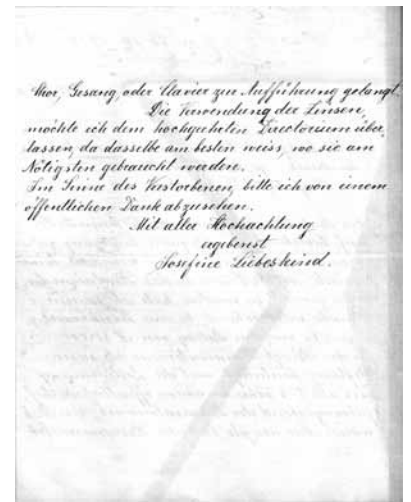 Chor, Gesang, oder Clavier zur Aufführung gelangt.
Die Verwendung der Zinsen,
möchte ich dem hochgeehrten Directorium über,
lassen, da dasselbe am besten weiss, wo sie am
Nötigsten gebraucht werden.
Im Sinne des Verstorbenen, bitte ich von einem
öffentlichen Dank abzusehen.
Mit aller Hochachtung
ergebenst
Josefine Liebeskind.